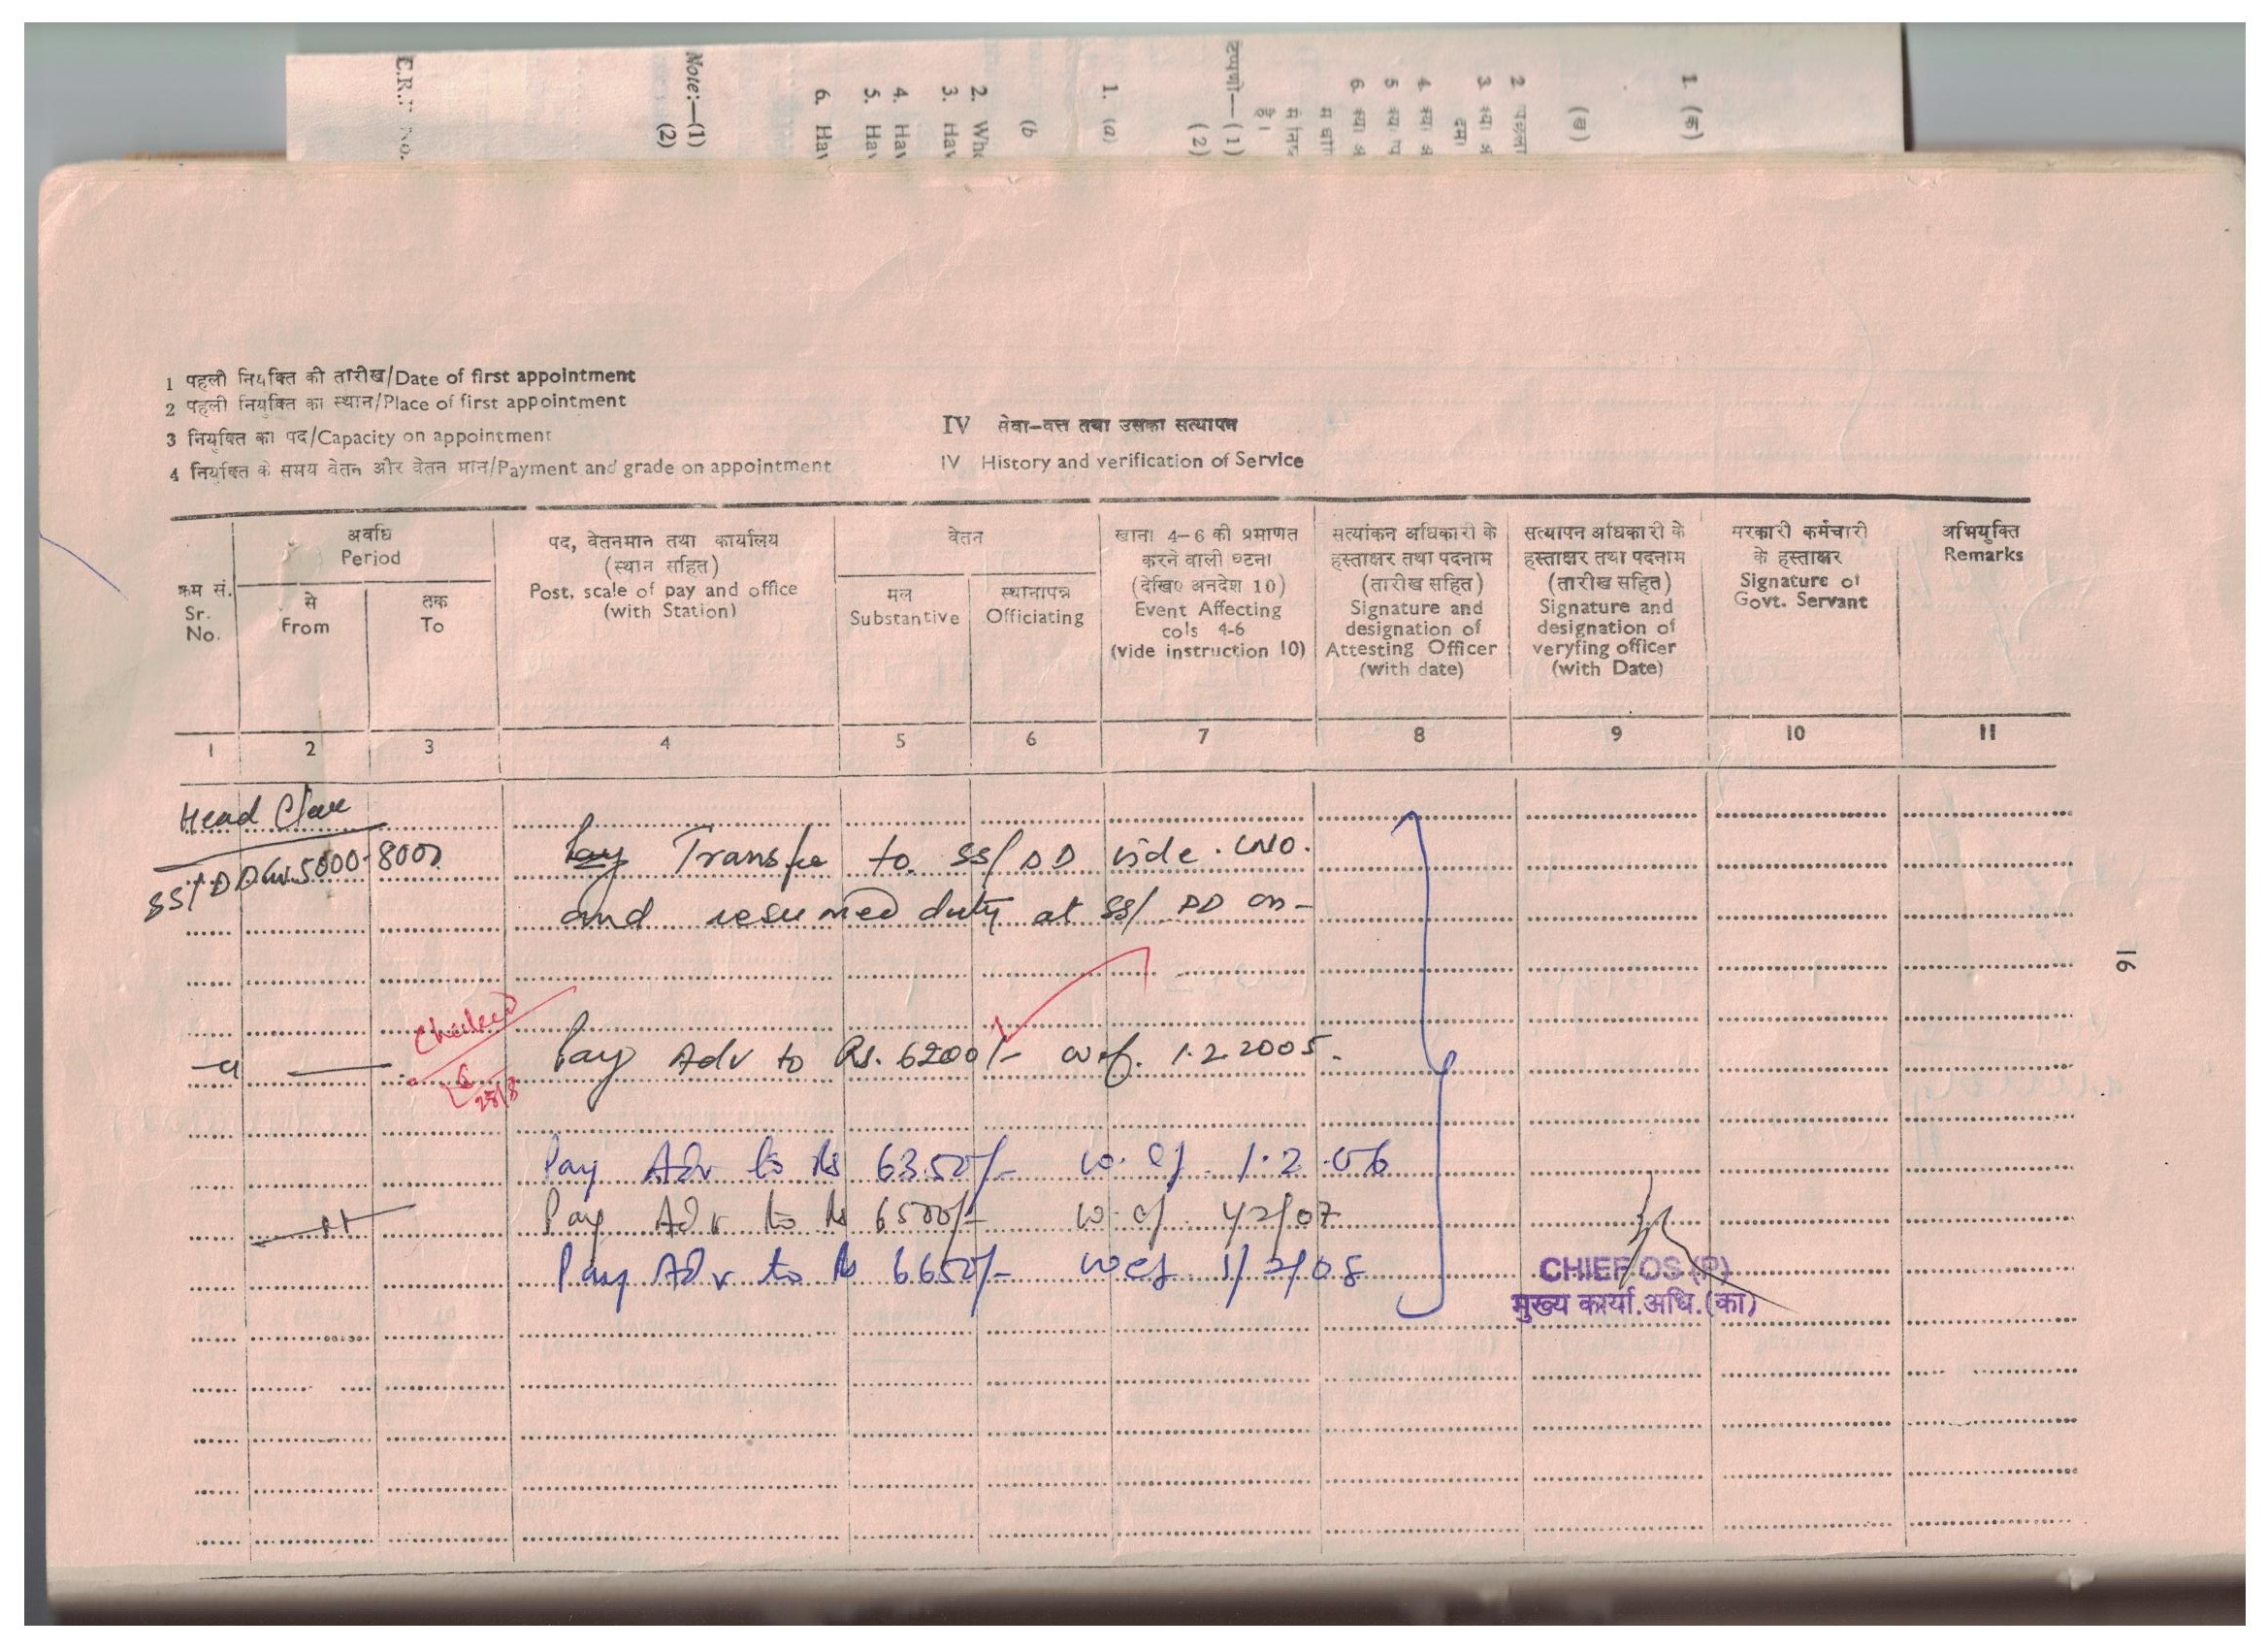 C.R.
No.
Note:—(1)
(2)
6. Hav
5. Hav
4. Hav
3. Hav
2. Whe
(b
1. (a)
(2)
टिप्पणी—(1)
है।
6.
5
4
3.
2
(ख)
1. (क)
1 पहली नियुक्ति की तारीख/Date of first appointment
2 पहली नियुक्ति का स्थान/Place of first appointment
3 नियुक्ति का पद/Capacity on appointment
4 नियुक्ति के समय वेतन और वेतन मान/Payment and grade on appointment
IV सेवा-वृत्त तथा उसका सत्यापन
IV History and verification of Service
क्रम सं.
Sr.
No.
अवधि
Period
से
From
तक
To
पद, वेतनमान तथा कार्यालय
(स्थान सहित)
Post, scale of pay and office
(with Station)
वेतन
मूल
Substantive
स्थानापन्न
Officiating
खाना 4-6 की प्रमाणत
करने वाली घटना
(देखिए अनदेश 10)
Event Affecting
cols 4-6
(vide instruction 10)
सत्यांकन अधिकारी के
हस्ताक्षर तथा पदनाम
(तारीख सहित)
Signature and
designation of
Attesting Officer
(with date)
सत्यापन अधिकारी के
हस्ताक्षर तथा पदनाम
(तारीख सहित)
Signature and
designation of
veryfing officer
(with Date)
सरकारी कर्मचारी
के हस्ताक्षर
Signature of
Govt. Servant
अभियुक्ति
Remarks
1 2 3 4 5 6 7 8 9 10 11
Head
SS/DD 5000-8000
Pay Transfe to SS/DD vide
and resumed duty at SS/DD on-
16
Checked
28/8
Pay Adv to Rs. 6200/- w.e.f. 1.2.2005.
Pay Adv to Rs 6350/- w.ef. 1.2.06
Pay Adv to Rs 6500/- w.ef. 1/2/07
Pay Adv to Rs 6650/- wef. 1/2/08
CHIEF OS (P)
मुख्य कार्या.अधि.(का)